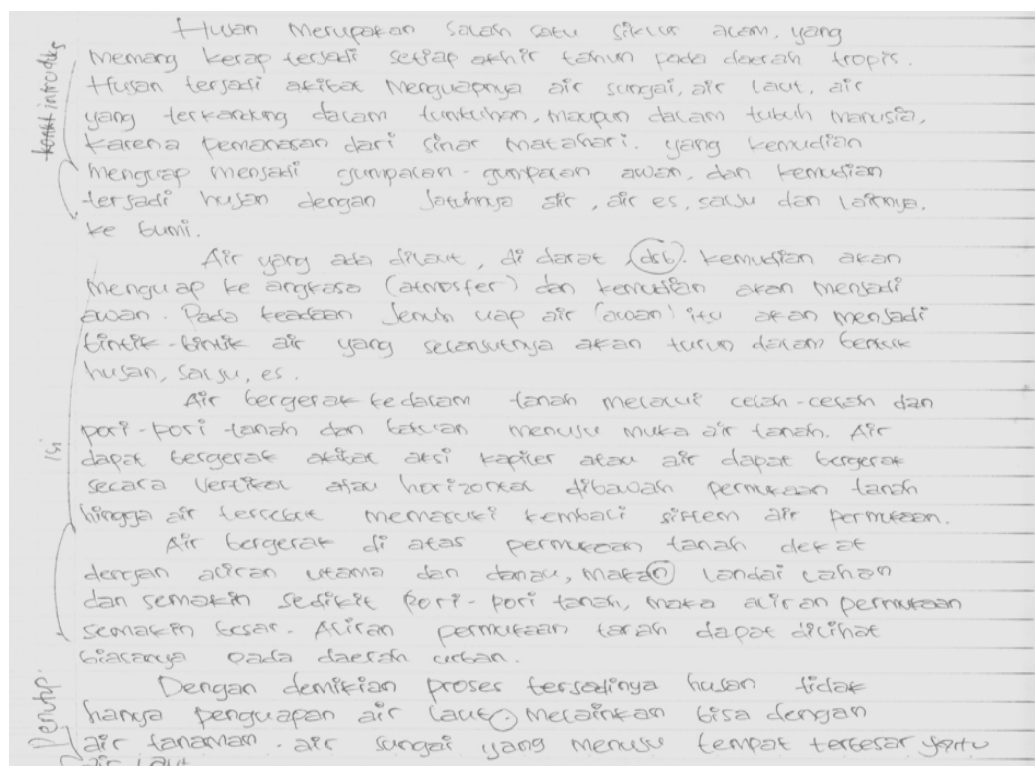 Hujan Merupakan salah satu siklus alam, yang
Memang kerap terjadi setiap akhir tahun pada daerah tropis.
Hujan terjadi akibat Menguapnya air sungai, air laut, air
yang terkandung dalam tumbuhan, maupun dalam tubuh manusia,
karena pemanasan dari sinar matahari. yang kemudian
menguap menjadi gumpalan-gumpalan awan, dan kemudian
terjadi hujan dengan Jatuhnya air, air es, salju dan lainnya.
ke bumi.
Air yang ada dilaut, di darat (dsb). kemudian akan
menguap ke angkasa (atmosfer) dan kemudian akan menjadi
awan. Pada keadaan Jenuh uap air (awan) itu akan menjadi
bintik-bintik air yang selanjutnya akan turun dalam bentuk
hujan, salju, es.
Air bergerak kedalam tanah melalui celah-celah dan
pori-pori tanah dan batuan menuju muka air tanah. Air
dapat bergerak akibat aksi kapiler atau air dapat bergerak
secara vertikal atau horizontal dibawah permukaan tanah
hingga air tersebut memasuki kembali sistem air permukaan.
Air bergerak di atas permukaan tanah dekat
dengan aliran utama dan danau, makan landai lahan
dan semakin sedikit pori-pori tanah, maka aliran permukaan
semakin besar. Aliran permukaan tanah dapat dilihat
biasanya pada daerah urban.
Dengan demikian proses terjadinya hujan tidak
hanya penguapan air laut. Melainkan bisa dengan
air tanaman. air sungai yang menuju tempat terbesar yaitu
air laut
introduksi
isi
Penutup